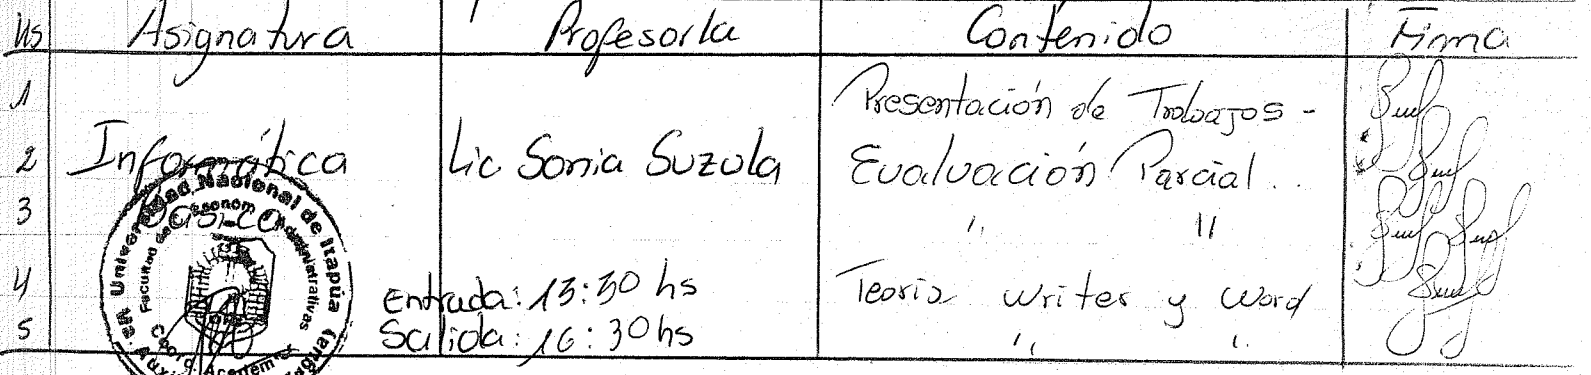 Hs Asignatura Profesor/a Contenido Firma
1 Presentación de Trabajos -
2 Informática Lic Sonia Suzula Evaluación Parcial ..
3 Básico " "
4 Entrada: 13:30 hs Teoria Writer y Word
5 Salida: 16:30 hs " "
Universidad Nacional de Itapúa
Facultad de Administrativas
Coord. Academ